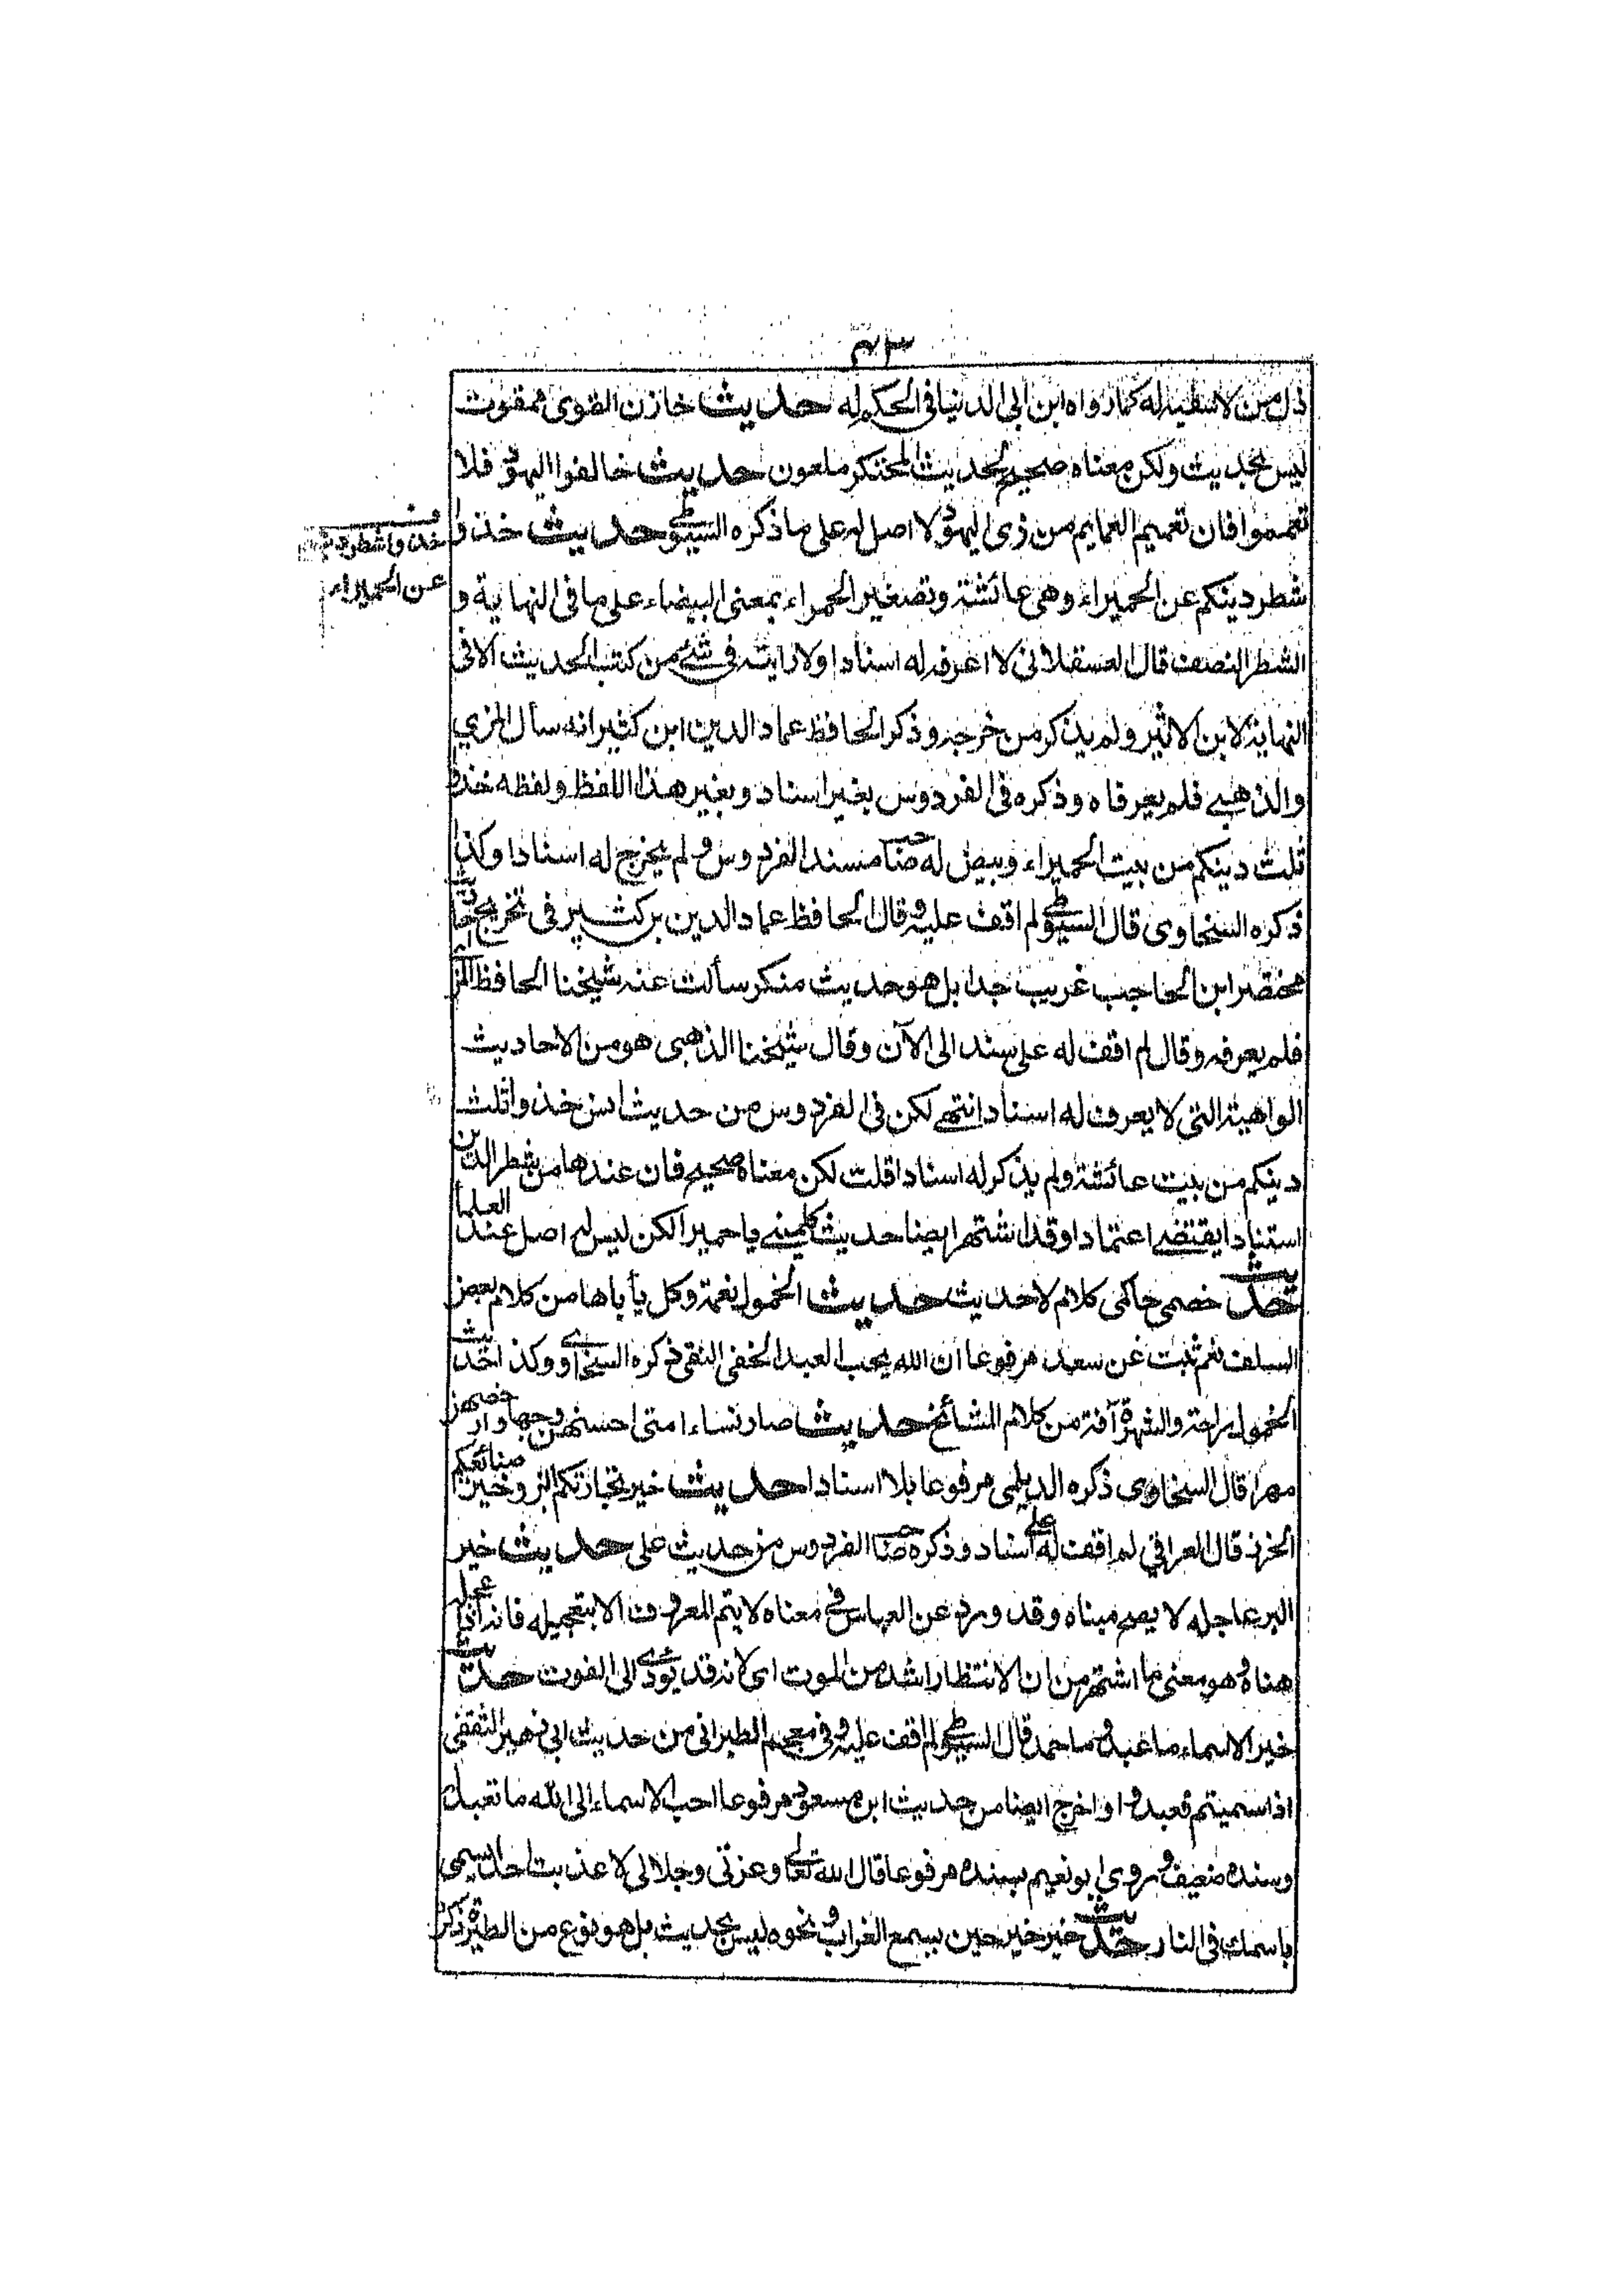 ٤٣
ذل من لا سفيه له كما رواه ابن ابى الدنيا فى الحكم له حديث خازن القوى ممقوت
ليس بحديث ولكن معناه صحيح لحديث المحتكر ملعون حديث خالفوا اليهود فلا
تعمموا فان تعميم العمايم من زى اليهود لا اصل له على ما ذكره السيوطى حديث خذوا
شطر دينكم عن الحميراء وهى عائشة وتصغير الحمراء بمعنى البيضاء على ما فى النهاية و
الشطر النصف قال العسقلانى لا اعرف له اسنادا ولا رايته فى شئ من كتب الحديث الا فى
النهاية لابن الاثير ولم يذكر من خرجه وذكر الحافظ عماد الدين ابن كثير انه سأل المزي
والذهبى فلم يعرفاه وذكره فى الفردوس بغير اسناد وبغير هذا اللفظ ولفظه خذوا
ثلث دينكم من بيت الحميراء وبيض له صاحب مسند الفردوس ولم يخرج له اسنادا وكذا
ذكره السخاوى قال السيوطى لم اقف عليه وقال الحافظ عماد الدين بن كثير فى تخريج احاديث
مختصر ابن الحاجب غريب جدا بل هو حديث منكر سألت عنه شيخنا الحافظ المزى
فلم يعرفه وقال لم اقف له على سند الى الآن وقال شيخنا الذهبى هو من الاحاديث
الواهية التى لا يعرف له اسناد انتهى لكن فى الفردوس من حديث انس خذوا ثلث
دينكم من بيت عائشة ولم يذكر له اسنادا قلت لكن معناه صحيح فان عندها من شطر الدين
استنادا يقتضى اعتمادا وقد اشتهر ايضا حديث كلمينى يا حميرا لكن ليس له اصل عند العلماء
حديث خصمى حاكمى كلام لا حديث حديث الخمول نعمة وكل يأباها من كلام بعض
السلف نعم ثبت عن سعد مرفوعا ان الله يحب العبد الخفى التقى ذكره السخاوى وكذا حديث
الخمول راحة والشهرة آفة من كلام المشائخ حديث صار نساء امتى احسنهن وجها وارخصهن
مهرا قال السخاوى ذكره الديلمى مرفوعا بلا اسناد احديث خير تجارتكم البز وخير صنائعكم
الخرز قال العراقي لم اقف له على اسناد وذكره صاحب الفردوس من حديث على حديث خير
البر عاجله لا يصح مبناه وقد ورد عن العباس فى معناه لا يتم المعروف الا بتعجيله فانه اذا عجله
هناه وهو معنى ما اشتهر من ان الانتظار اشد من الموت اى لانه قد يؤدى الى الفوت حديث
خير الاسماء ما عبد وما حمد قال السيوطى لم اقف عليه وفى معجم الطبرانى من حديث ابى زهير الثقفى
اذا سميتم فعبدوا واخرج ايضا من حديث ابن مسعود مرفوعا احب الاسماء الى الله ما تعبد له
وسنده ضعيف وروي ابو نعيم بسنده مرفوعا قال الله تعالى وعزتى وجلالى لا عذبت احدا سمى
باسمك فى النار حديث خير خير حين يسمع الغراب ونحوه ليس بحديث بل هو نوع من الطيرة ذكره
خذوا شطر دينكم
عن الحميراء